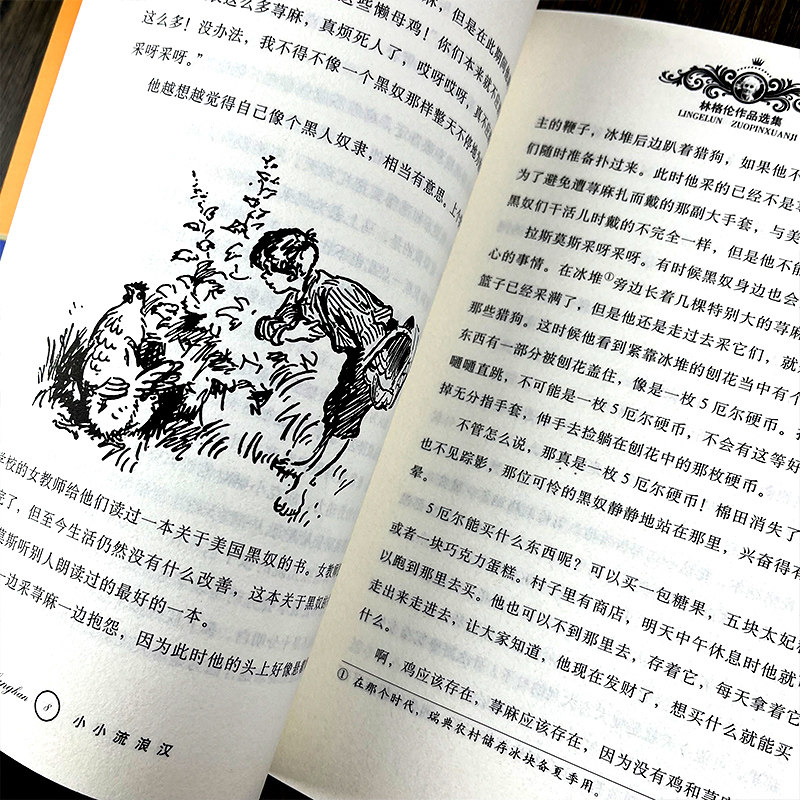 这么多荨麻，真烦死人了，哎呀哎呀，真不
这些懒母鸡！你们本来就不
麻，但是在此期间
这么多！没办法，我不得不像一个黑奴那样整天不停地
采呀采呀。”
他越想越觉得自己像个黑人奴隶，相当有意思。上个
学校的女教师给他们读过一本关于美国黑奴的书。女教师
完了，但至今生活仍然没有什么改善，这本关于黑奴的
莫斯听别人朗读过的最好的一本。
一边采荨麻一边抱怨，因为此时他的头上好像悬
8
小小流浪汉
林格伦作品选集
LINGELUN ZUOPINXUANJI
主的鞭子，冰堆后边趴着猎狗，如果他不
们随时准备扑过来。此时他采的已经不是
为了避免遭荨麻扎而戴的那副大手套，与美
黑奴们干活儿时戴的不完全一样，但是他不能
拉斯莫斯采呀采呀。有时候黑奴身边也会
心的事情。在冰堆①旁边长着几棵特别大的荨麻
篮子已经采满了，但是他还是走过去采它们，就
那些猎狗。这时候他看到紧靠冰堆的刨花当中有个
东西有一部分被刨花盖住，像是一枚5厄尔硬币。
嗵嗵直跳，不可能是一枚5厄尔硬币，不会有这等好
掉无分指手套，伸手去捡躺在刨花中的那枚硬币。
不管怎么说，那真是一枚5厄尔硬币！棉田消失了
也不见踪影，那位可怜的黑奴静静地站在那里，兴奋得有
晕。
5厄尔能买什么东西呢？可以买一包糖果，五块太妃
或者一块巧克力蛋糕。村子里有商店，明天中午休息时他就
以跑到那里去买。他也可以不到那里去，存着它，每天拿着它
走出来走进去，让大家知道，他现在发财了，想买什么就能买
什么。
啊，鸡应该存在，荨麻应该存在，因为没有鸡和荨
①在那个时代，瑞典农村储存冰块备夏季用。